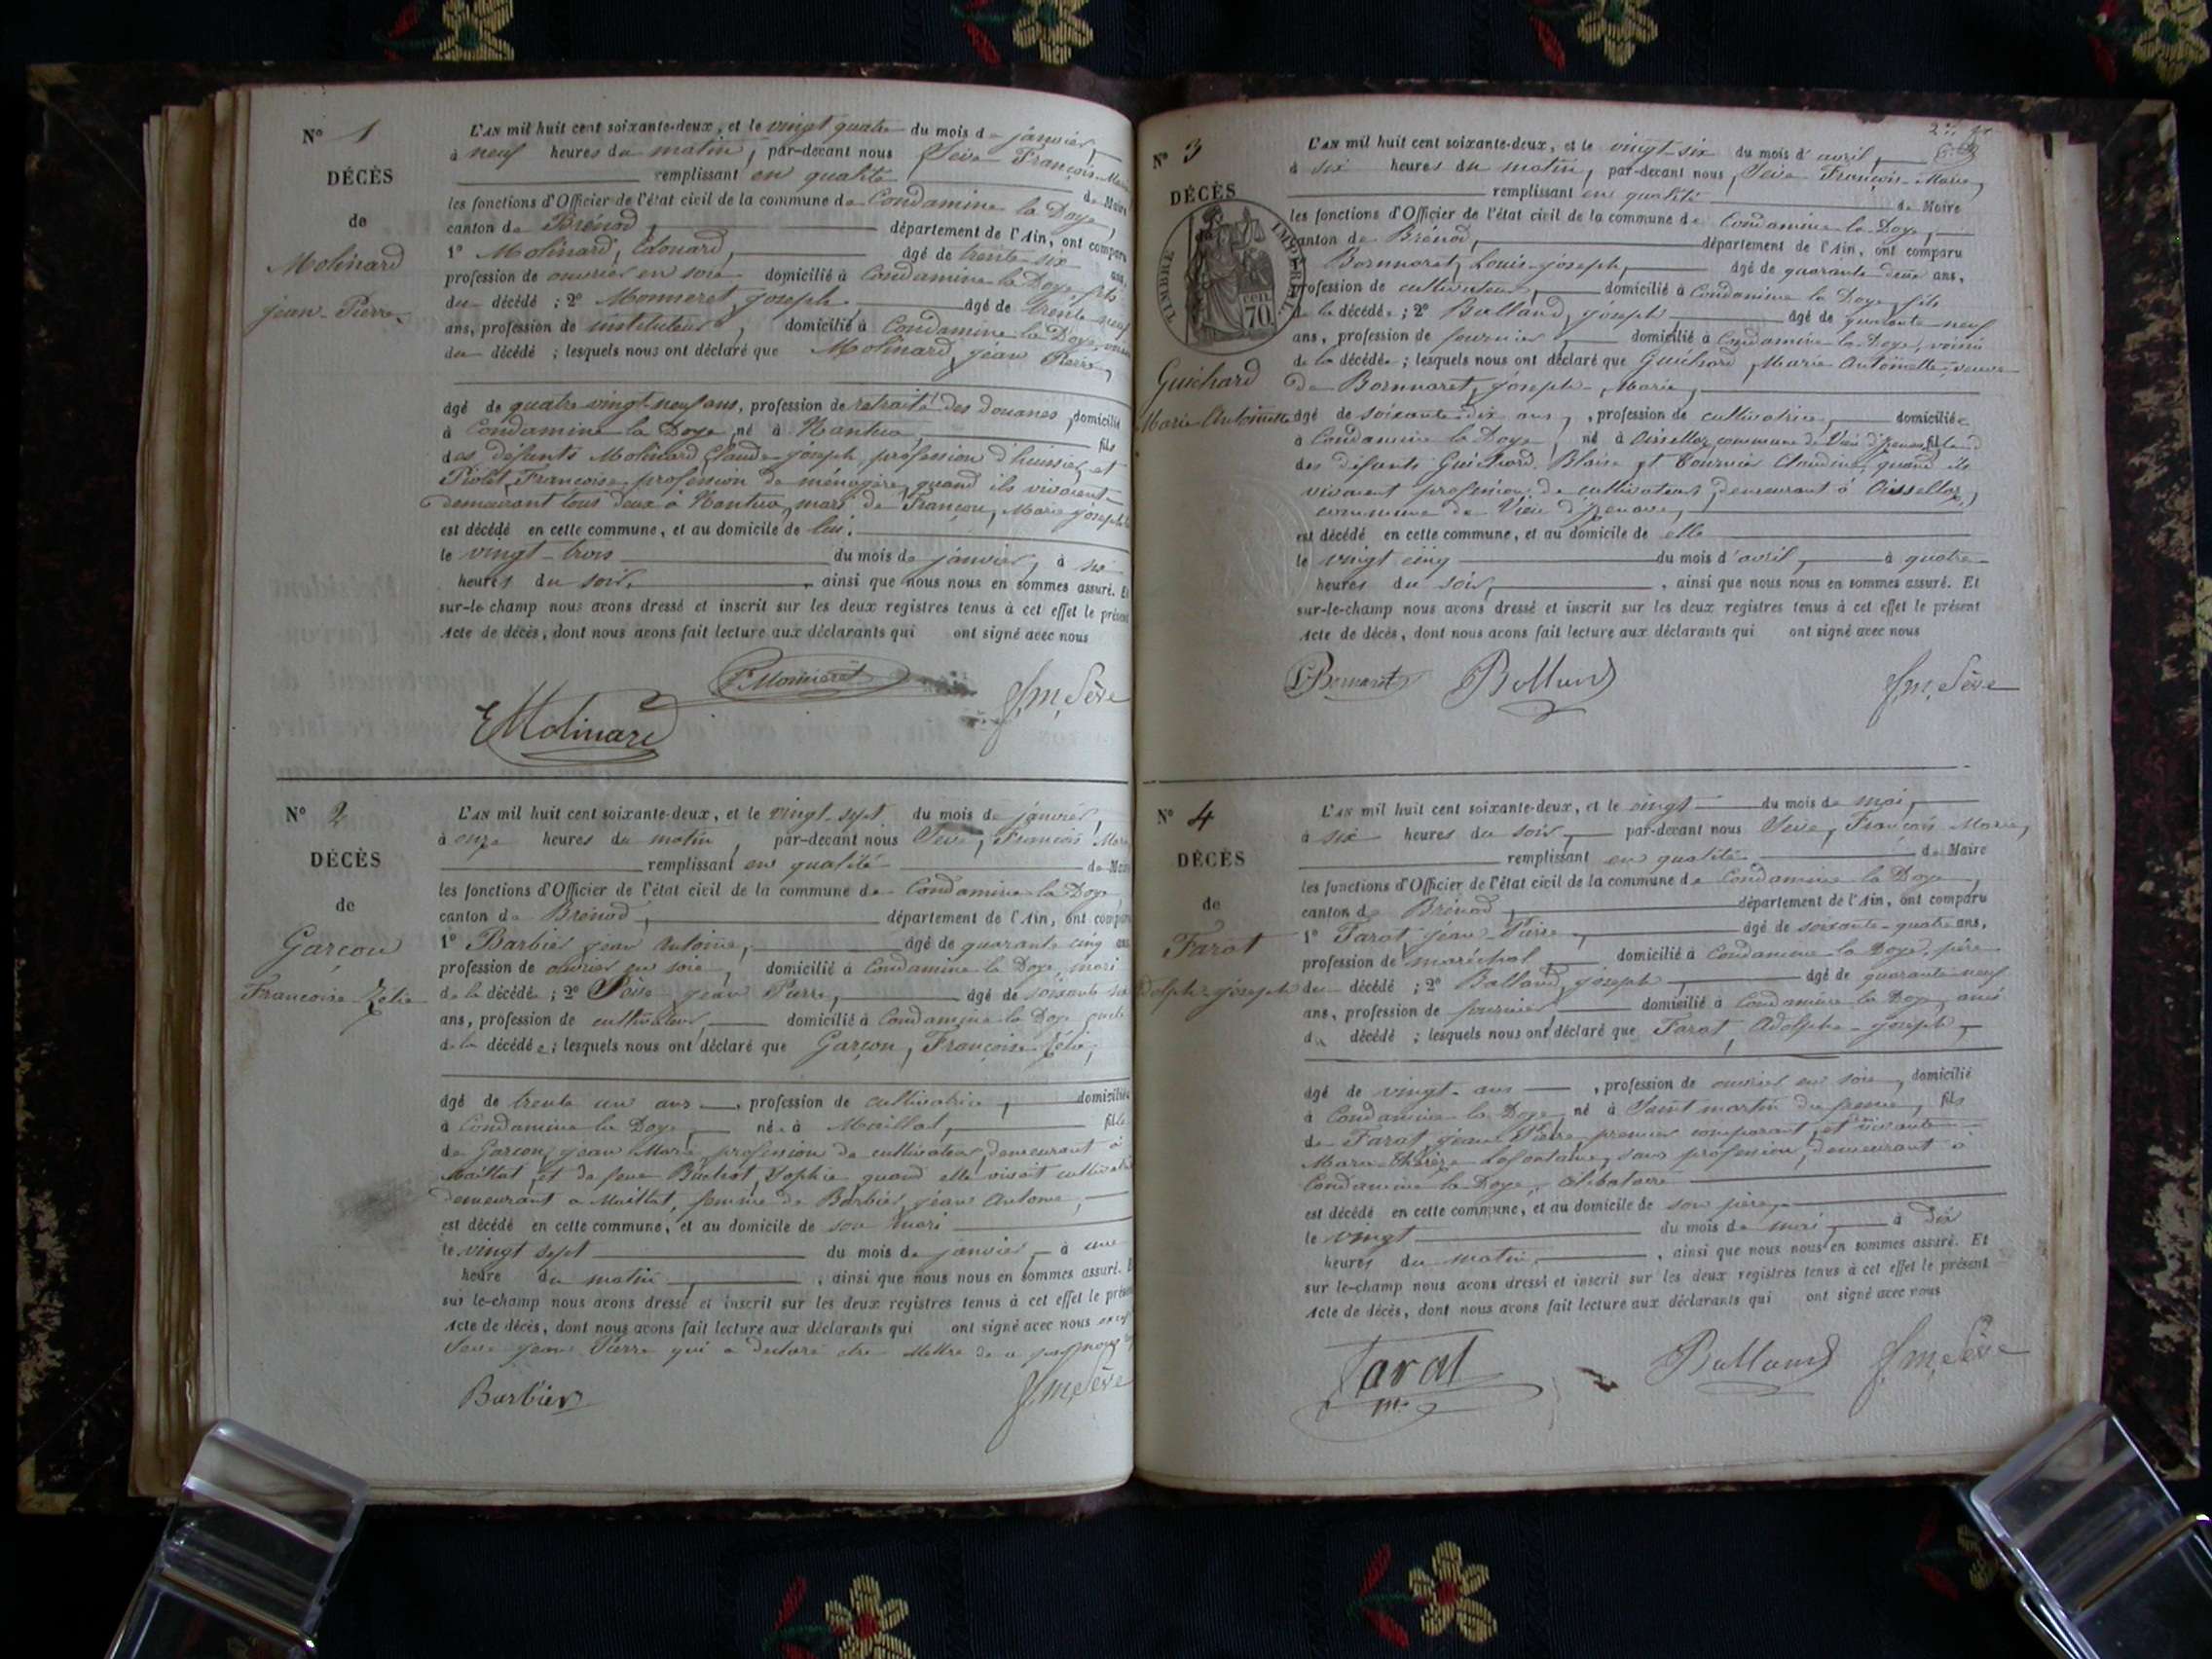 N° 1
DÉCÈS
de
Molinard
jean-Pierre
L'AN mil huit cent soixante-deux, et le vingt quatre du mois de janvier,
à neuf heures du matin, par-devant nous Sève François-Marie
remplissant en qualité de Maire
les fonctions d'Officier de l'état civil de la commune de Condamine la Doye,
canton de Brénod, département de l'Ain, ont comparu
1° Molinard, Edouard, âgé de trente-six ans,
profession de ouvrier en soie domicilié à Condamine la Doye, fils
du décédé ; 2° Monneret joseph, âgé de trente neuf
ans, profession de instituteur, domicilié à Condamine la Doye, voisin
du décédé ; lesquels nous ont déclaré que Molinard, jean Pierre,
âgé de quatre vingt-neuf ans, profession de retraité des douanes, domicilié
à Condamine la Doye, né à Nantua, fils
des défunts Molinard Claude-joseph, profession d'huissier, et
Piolet, Françoise, profession de ménagère, quand ils vivaient
demeurant tous deux à Nantua, mari de Françon, Marie josephte
est décédé en cette commune, et au domicile de lui,
le vingt-trois du mois de janvier, à six
heures du soir, ainsi que nous nous en sommes assuré. Et
sur-le-champ nous avons dressé et inscrit sur les deux registres tenus à cet effet le présent
Acte de décès, dont nous avons fait lecture aux déclarants qui ont signé avec nous
E Molinard J. Monneret f.m. Sève
N° 2
DÉCÈS
de
Garçon
Françoise Zélie
L'AN mil huit cent soixante-deux, et le vingt-sept du mois de janvier,
à onze heures du matin, par-devant nous Sève, François Marie
remplissant en qualité de Maire
les fonctions d'Officier de l'état civil de la commune de Condamine la Doye
canton de Brénod, département de l'Ain, ont comparu
1° Barbier jean Antoine, âgé de quarante cinq ans
profession de ouvrier en soie, domicilié à Condamine la Doye, mari
de la décédée ; 2° Sève jean Pierre, âgé de soixante six
ans, profession de cultivateur, domicilié à Condamine la Doye oncle
de la décédée ; lesquels nous ont déclaré que Garçon, Françoise Zélie,
âgé de trente un ans, profession de cultivatrice, domiciliée
à Condamine la Doye, née à Maillat, fille
de Garçon, jean Marie, profession de cultivateur, demeurant à
Maillat, et de feue Sophie quand elle vivait cultivatrice
demeurant à Maillat, femme de Barbier, jean Antoine,
est décédé en cette commune, et au domicile de son mari
le vingt sept du mois de janvier, à une
heure du matin, ainsi que nous nous en sommes assuré. Et
sur le-champ nous avons dressé et inscrit sur les deux registres tenus à cet effet le présent
Acte de décès, dont nous avons fait lecture aux déclarants qui ont signé avec nous
Sève jean Pierre qui a déclaré
Barbier f.m. Sève
N° 3
DÉCÈS
TIMBRE IMPÉRIAL
70 cen.
Guichard
Marie-Antoinette
L'AN mil huit cent soixante-deux, et le vingt six du mois d'avril,
à six heures du matin, par-devant nous, Sève François-Marie,
remplissant en qualité de Maire
les fonctions d'Officier de l'état civil de la commune de Condamine la Doye,
canton de Brénod, département de l'Ain, ont comparu
Bornnaret, Louis-joseph, âgé de quarante-deux ans,
profession de cultivateur, domicilié à Condamine la Doye, fils
de la décédée ; 2° Balland, joseph âgé de quarante-neuf
ans, profession de fournier, domicilié à Condamine la Doye, voisin
de la décédée ; lesquels nous ont déclaré que Guichard, Marie Antoinette, veuve
de Bornnaret, joseph-Marie,
âgé de soixante-dix ans, profession de cultivatrice, domiciliée
à Condamine la Doye, né à Oissellaz, commune de Vieu d'Izenave, fille
des défunts Guichard, Blaise et Tournier Claudine, quand ils
vivaient profession de cultivateurs, demeurant à Oissellaz,
commune de Vieu d'Izenave,
est décédé en cette commune, et au domicile de elle
le vingt cinq du mois d'avril, à quatre
heures du soir, ainsi que nous nous en sommes assuré. Et
sur-le-champ nous avons dressé et inscrit sur les deux registres tenus à cet effet le présent
Acte de décès, dont nous avons fait lecture aux déclarants qui ont signé avec nous
Balland f.m. Sève
N° 4
DÉCÈS
de
Farat
Adolphe-joseph
L'AN mil huit cent soixante-deux, et le vingt du mois de mai,
à six heures du soir, par-devant nous Sève, François Marie,
remplissant en qualité de Maire
les fonctions d'Officier de l'état civil de la commune de Condamine la Doye,
canton de Brénod, département de l'Ain, ont comparu
1° Farat, jean-Pierre, âgé de soixante-quatre ans,
profession de maréchal, domicilié à Condamine la Doye, père
du décédé ; 2° Balland, joseph, âgé de quarante neuf
ans, profession de fournier, domicilié à Condamine la Doye, ami
du décédé ; lesquels nous ont déclaré que Farat, Adolphe-joseph,
âgé de vingt ans, profession de ouvrier en soie, domicilié
à Condamine la Doye, né à Saint martin du frêne, fils
de Farat, jean Pierre, premier comparant, et vivante
Marie-Thérèze Lafontaine, sans profession, demeurant à
Condamine la Doye, célibataire
est décédé en cette commune, et au domicile de son père,
le vingt du mois de mai, à dix
heures du matin, ainsi que nous nous en sommes assuré. Et
sur le-champ nous avons dressé et inscrit sur les deux registres tenus à cet effet le présent
Acte de décès, dont nous avons fait lecture aux déclarants qui ont signé avec nous
Farat Balland f.m. Sève